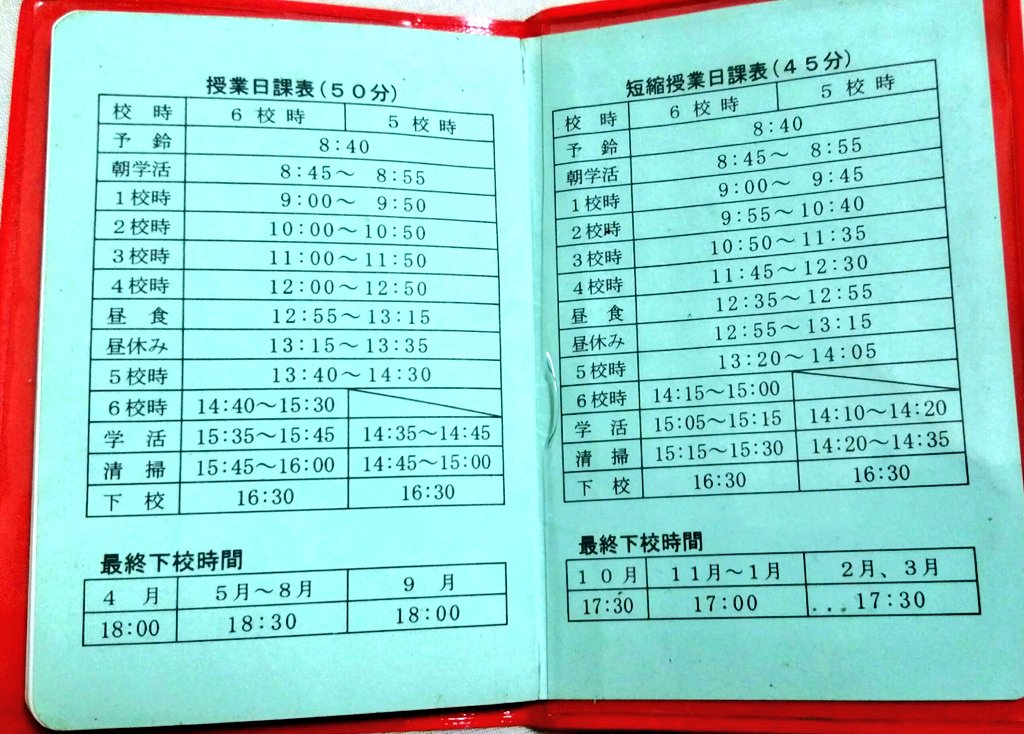 授業日課表(50分)
校 時 6 校 時 5 校 時
予 鈴 8:40
朝学活 8:45〜 8:55
1校時 9:00〜 9:50
2校時 10:00〜10:50
3校時 11:00〜11:50
4校時 12:00〜12:50
昼 食 12:55〜13:15
昼休み 13:15〜13:35
5校時 13:40〜14:30
6校時 14:40〜15:30
学 活 15:35〜15:45 14:35〜14:45
清 掃 15:45〜16:00 14:45〜15:00
下 校 16:30 16:30
最終下校時間
4 月 5月〜8月 9 月
18:00 18:30 18:00
短縮授業日課表(45分)
校 時 6 校 時 5 校 時
予 鈴 8:40
朝学活 8:45〜 8:55
1校時 9:00〜 9:45
2校時 9:55〜10:40
3校時 10:50〜11:35
4校時 11:45〜12:30
昼 食 12:35〜12:55
昼休み 12:55〜13:15
5校時 13:20〜14:05
6校時 14:15〜15:00
学 活 15:05〜15:15 14:10〜14:20
清 掃 15:15〜15:30 14:20〜14:35
下 校 16:30 16:30
最終下校時間
10月 11月〜1月 2月、3月
17:30 17:00 17:30